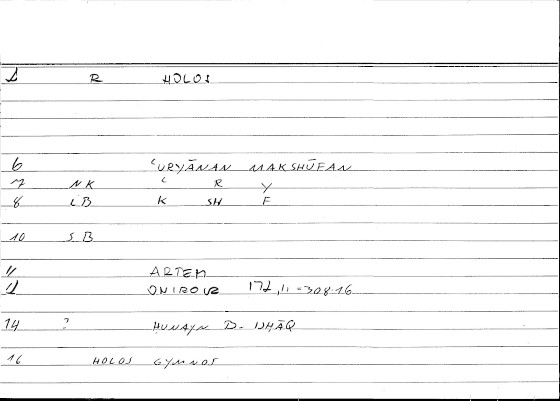 1 R HOLOS
6 ʿURYĀNAN MAKSHŪFAN
7 NK ʿ R Y
8 LB K SH F
10 SB
11 ARTEM
12 ONIROCR 172,11 = 308.16
14 ? ḤUNAYN B- ISḤĀQ
16 HOLOS GYMNOS